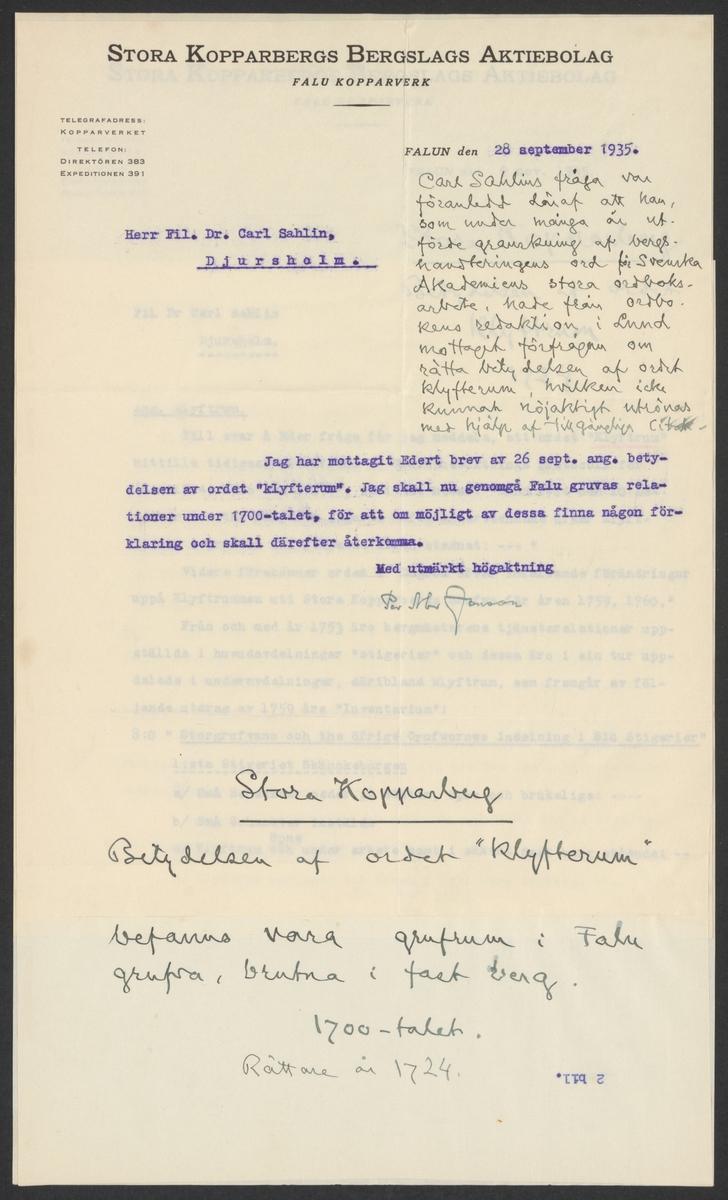 STORA KOPPARBERGS BERGSLAGS AKTIEBOLAG
FALU KOPPARVERK
TELEGRAFADRESS:
KOPPARVERKET
TELEFON:
DIREKTÖREN 383
EXPEDITIONEN 391
FALUN den 28 september 1935.
Carl Sahlins fråga var
föranledd däraf att han,
som under många år ut-
förde granskning af bergs-
handteringens ord för Svenska
Akademiens stora ordboks-
arbete, hade från ordbo-
kens redaktion i Lund
mottagit förfrågan om
rätta betydelsen af ordet
klyfterum, hvilken icke
kunnat nöjaktigt utrönas
med hjälp af tillgängliga
Herr Fil. Dr. Carl Sahlin,
Djursholm.
Jag har mottagit Edert brev av 26 sept. ang. bety-
delsen av ordet "klyfterum". Jag skall nu genomgå Falu gruvas rela-
tioner under 1700-talet, för att om möjligt av dessa finna någon för-
klaring och skall därefter återkomma.
Med utmärkt högaktning
Per Jonson
Stora Kopparberg
Betydelsen af ordet "klyfterum"
befanns vara grufrum i Falu
grufva, brutna i fast berg.
1700-talet.
Rättare år 1724.
2 bil.